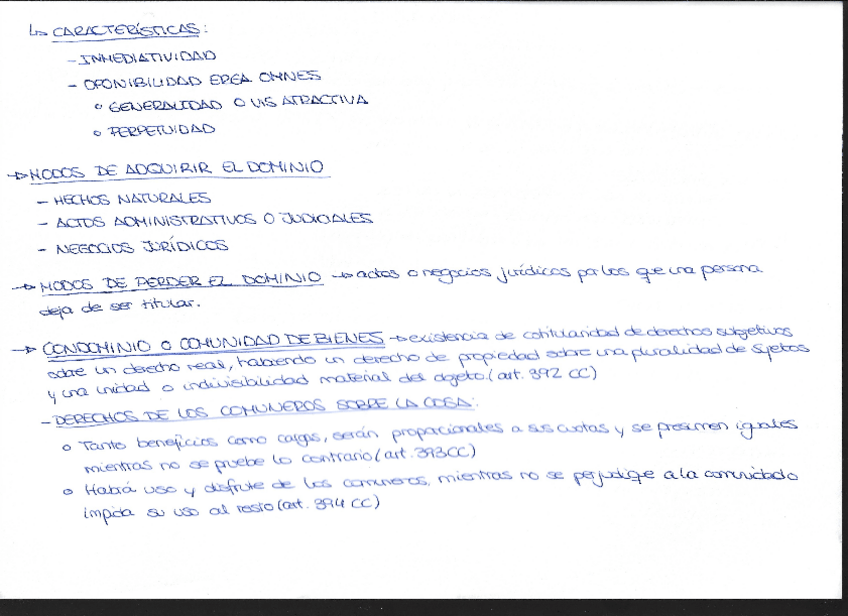 ↳ CARACTERÍSTICAS:
- INMEDIATIVIDAD
- OPONIBILIDAD ERGA OMNES
o GENERALIDAD O VIS ATRACTIVA
o PERPETUIDAD
→ MODOS DE ADQUIRIR EL DOMINIO
- HECHOS NATURALES
- ACTOS ADMINISTRATIVOS O JUDICIALES
- NEGOCIOS JURÍDICOS
→ MODOS DE PERDER EL DOMINIO → actos o negocios jurídicos por los que una persona
deja de ser titular.
→ CONDOMINIO O COMUNIDAD DE BIENES → existencia de cotitularidad de derechos subjetivos
sobre un derecho real, habiendo un derecho de propiedad sobre una pluralidad de sujetos
y una unidad o indivisibilidad material del objeto. (art. 392 CC)
- DERECHOS DE LOS COMUNEROS SOBRE LA COSA:
o Tanto beneficios como cargas, serán proporcionales a sus cuotas y se presumen iguales
mientras no se pruebe lo contrario (art. 393 CC)
o Habrá uso y disfrute de los comuneros, mientras no se perjudique a la comunidad o
impida su uso al resto (art. 394 CC)